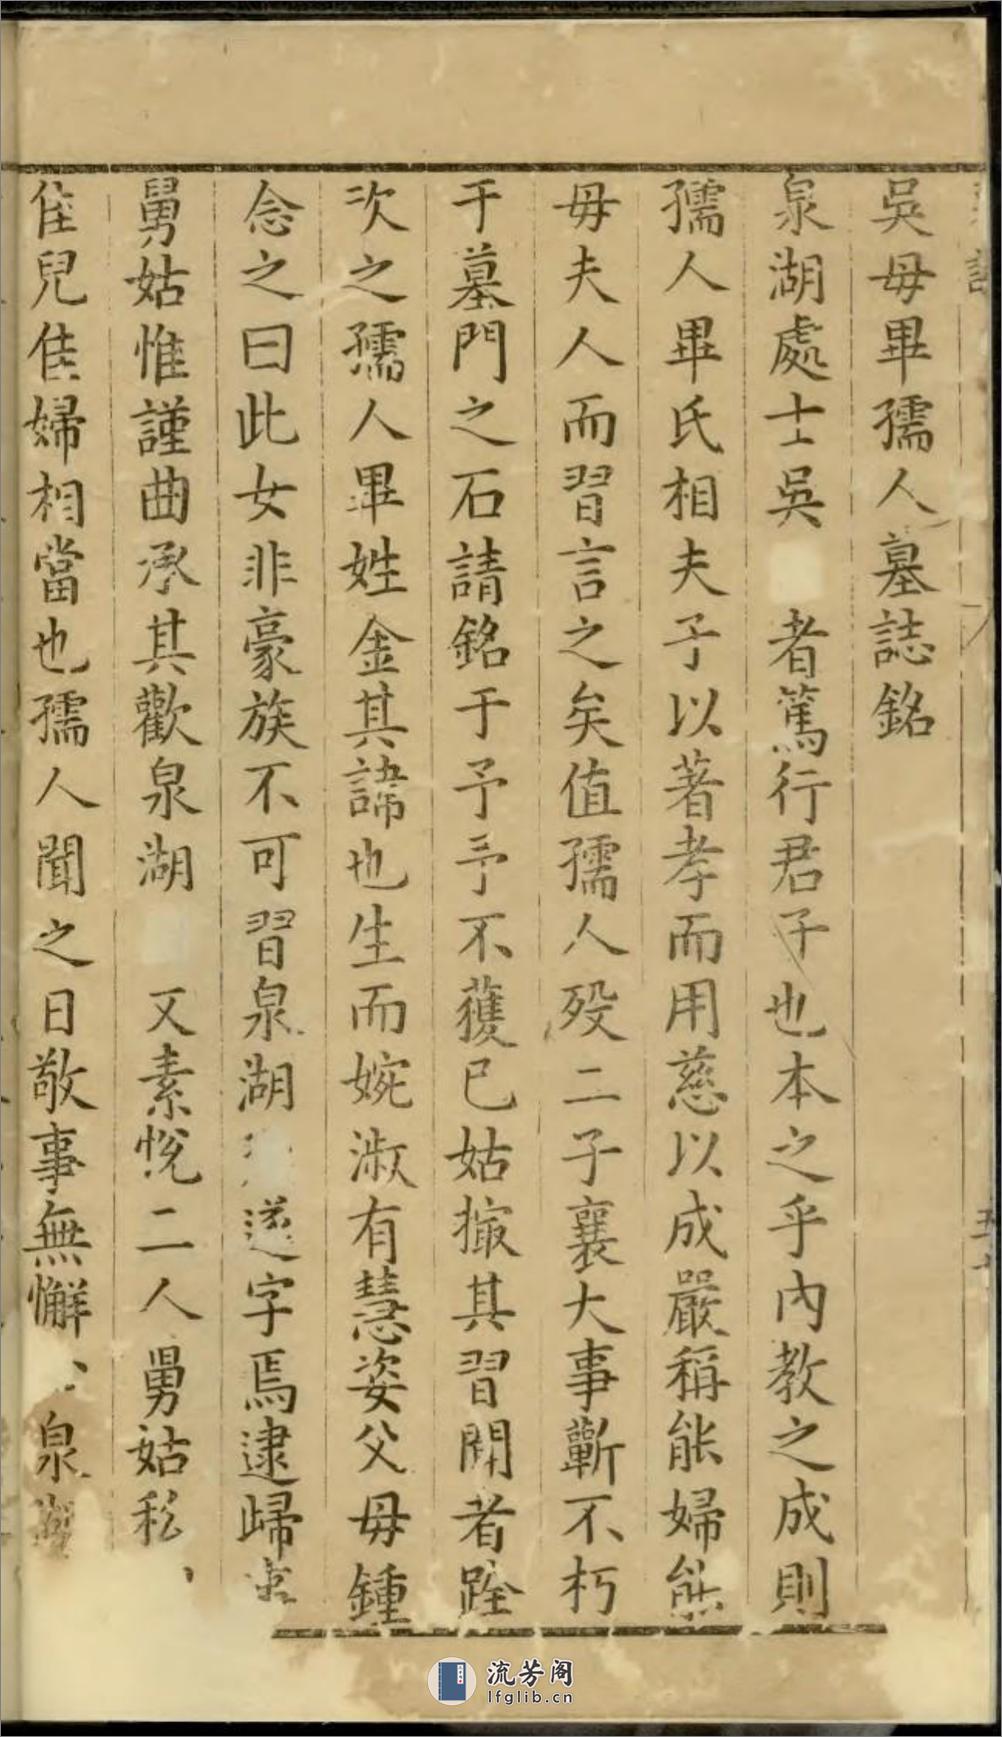 吳母畢孺人墓誌銘
泉湖處士吳 者篤行君子也本之乎內教之成則
孺人畢氏相夫子以著孝而用慈以成嚴稱能婦能
母夫人而習言之矣值孺人歿二子襄大事蘄不朽
于墓門之石請銘于予予不獲已姑撮其習聞者詮
次之孺人畢姓金其諱也生而婉淑有慧姿父母鍾
念之曰此女非豪族不可習泉湖 遂字焉逮歸
舅姑惟謹曲承其歡泉湖 又素悅二人舅姑私
佳兒佳婦相當也孺人聞之日敬事無懈 泉湖
流芳阁
lfglib.cn